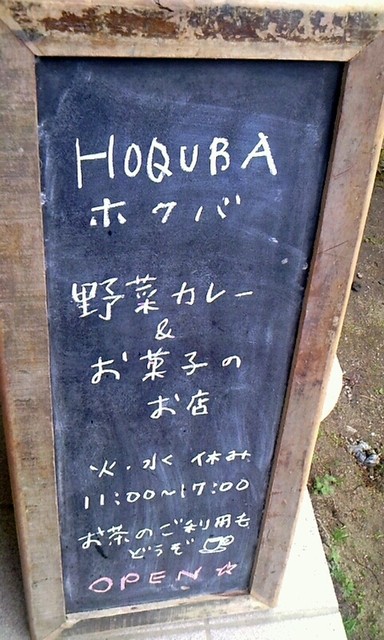 HOQUBA
ホクバ
野菜カレー
&
お菓子の
お店
火・水 休み
11:00~17:00
お茶のご利用も
どうぞ
OPEN☆